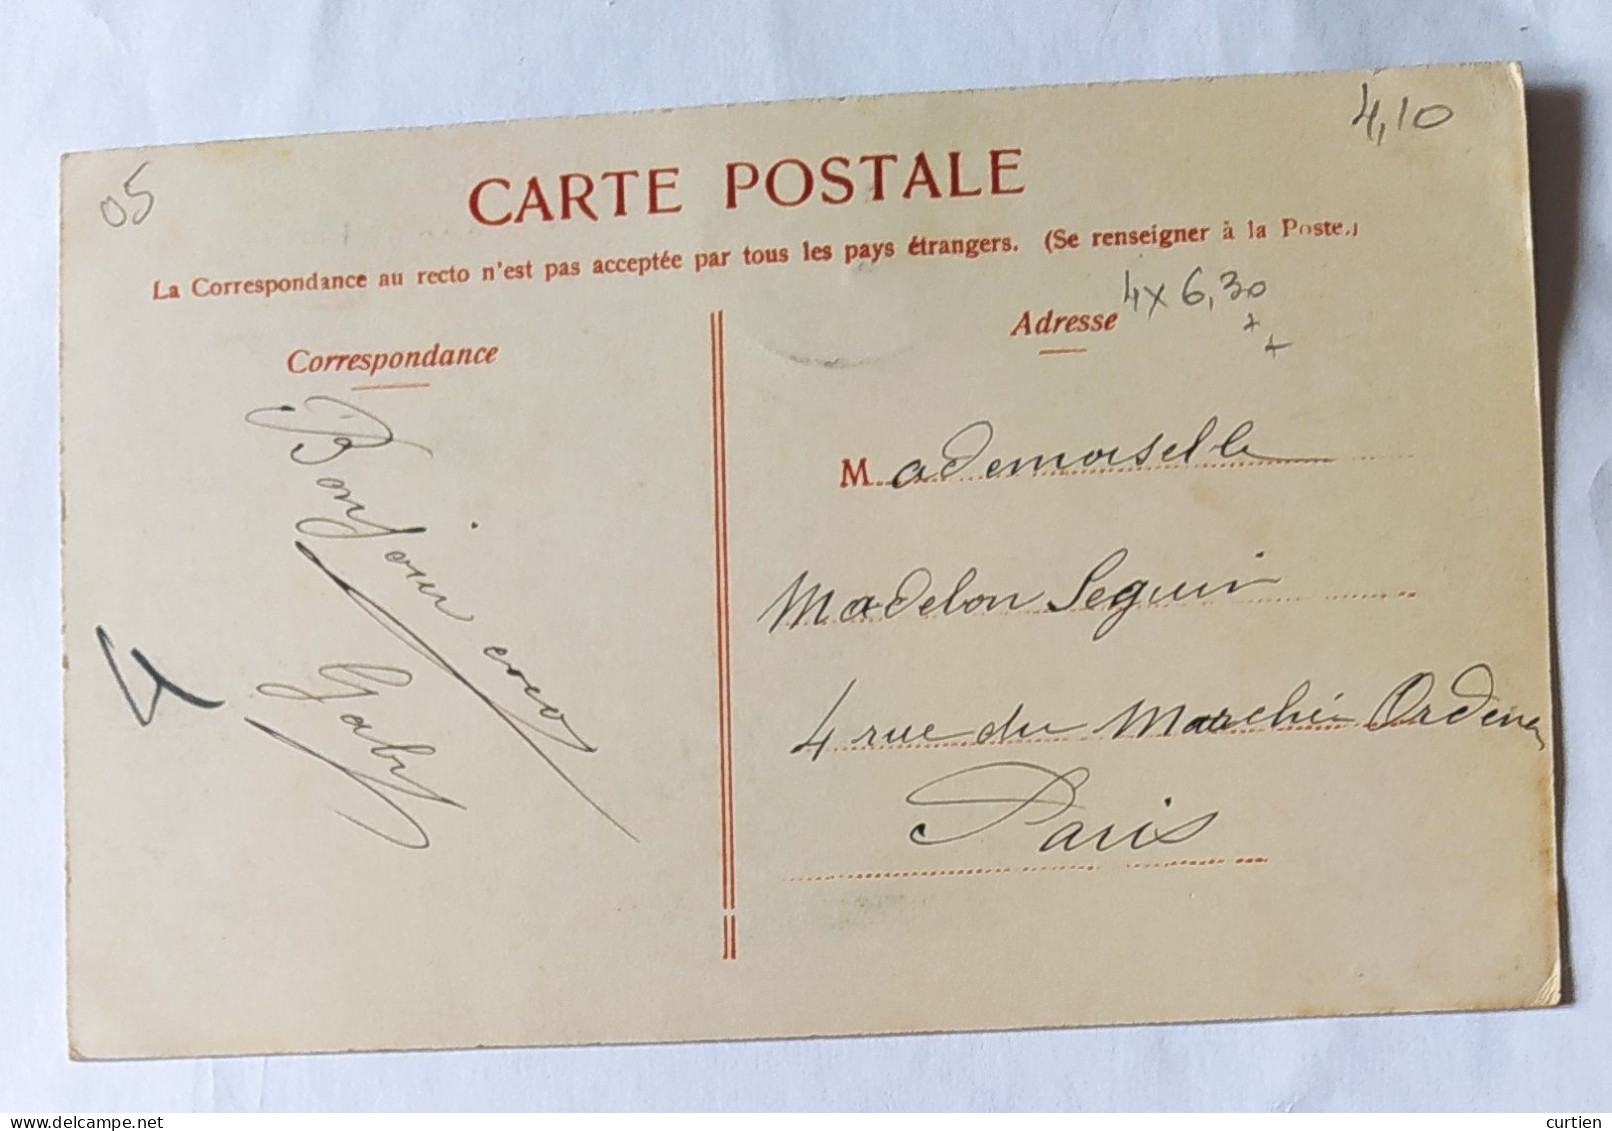 05
4,10
CARTE POSTALE
La Correspondance au recto n'est pas acceptée par tous les pays étrangers. (Se renseigner à la Poste.)
Correspondance
Adresse
4 x 6,30
+
+
Bonjour coco
Gaby
4
Mademoiselle
Madelon Seguin
4 rue du Marché Ordener
Paris
delcampe.net
curtien